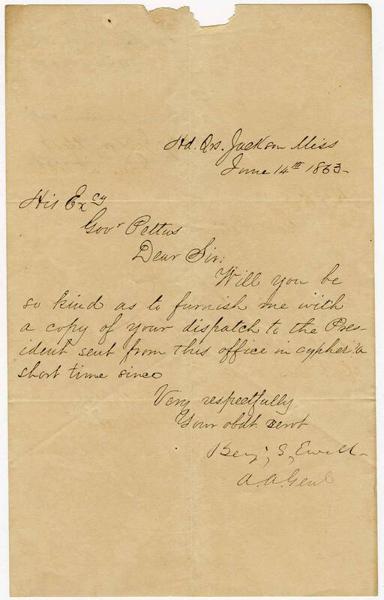 Hd. Qrs. Jackson Miss
June 14th 1863-
His Excy
Govr Pettus
Dear Sir:
Will you be
so kind as to furnish me with
a copy of your dispatch to the Pres-
ident sent from this office in cypher a
short time since
Very respectfully
Your obdt servt
Benj. S. Ewell
A. A. Genl